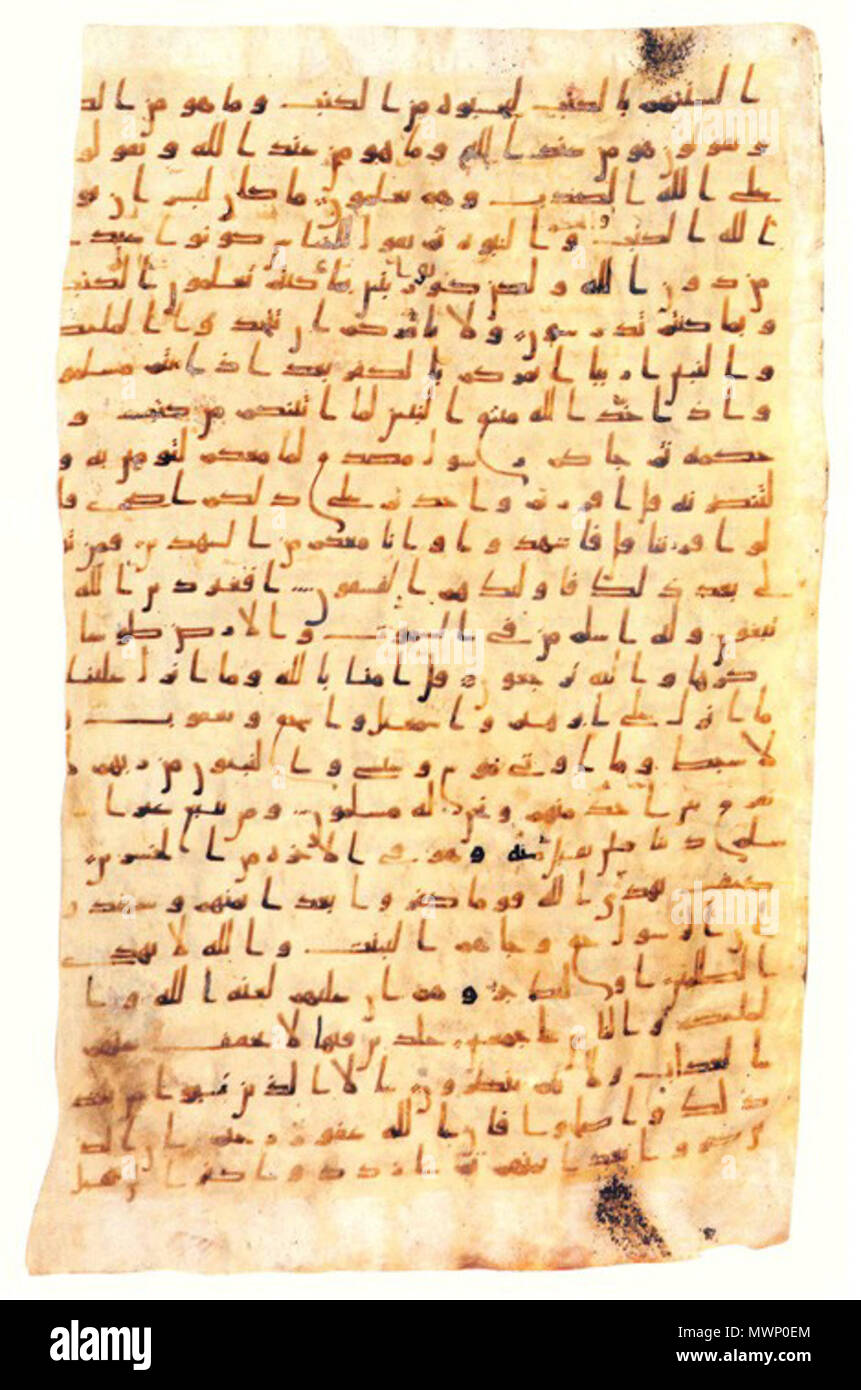 السنتهم بالكتب لتحسبوه من الكتب وما هو من الكـ
ويقولون هو من عند الله وما هو من عند الله ويقولو
على الله الكذب وهم يعلمون ما كان لبشر ان يو
الله الكتب والنبوه ثم يقول للناس كونوا عبد
من دون الله ولكن كونوا ربنين بما كنتم تعلمون الكتب
وبما كنتم تدرسون ولا يامركم ان تتخذوا الملئكه
والنبين اربابا ايامركم بالكفر بعد اذ انتم مسلمو
واذ اخذ الله ميثق النبين لما اتيتكم من كتب و
حكمه ثم جاكم رسول مصدق لما معكم لتومنن به و
لتنصرنه قل اقررتم واخذتم على ذلكم اصري قا
لوا اقررنا قل فاشهدوا وانا معكم من الشهدين فمن تو
لى بعد ذلك فاولئك هم الفسقون افغير دين الله
تبغون وله اسلم من في السموت والارض طوعا
كرها واليه ترجعون قل امنا بالله وما انزل علينا
ما انزل على ابرهيم واسمعيل واسحق ويعقوب و
لاسبط وما اوتي موسى وعيسى والنبيون من ربهم لا
نفرق بين احد منهم ونحن له مسلمون ومن يبتغ غير ا
سلم دينا فلن يقبل منه وهو في الاخره من الخسرين
كيف يهدي الله قوما كفروا بعد ايمنهم وشهدو
الرسول حق وجاهم البينت والله لا يهدي
الظلمين اولئك جزوهم ان عليهم لعنه الله وا
لملئكه والناس اجمعين خلدين فيها لا يخفف عنهم
العذاب ولا هم ينظرون الا الذين تابوا من بعد
ذلك واصلحوا فان الله غفور رحيم ان الذ
كفروا بعد ايمنهم ثم ازددوا كفرا لن تقبل
alamy
Image ID: MWP0EM
www.alamy.com